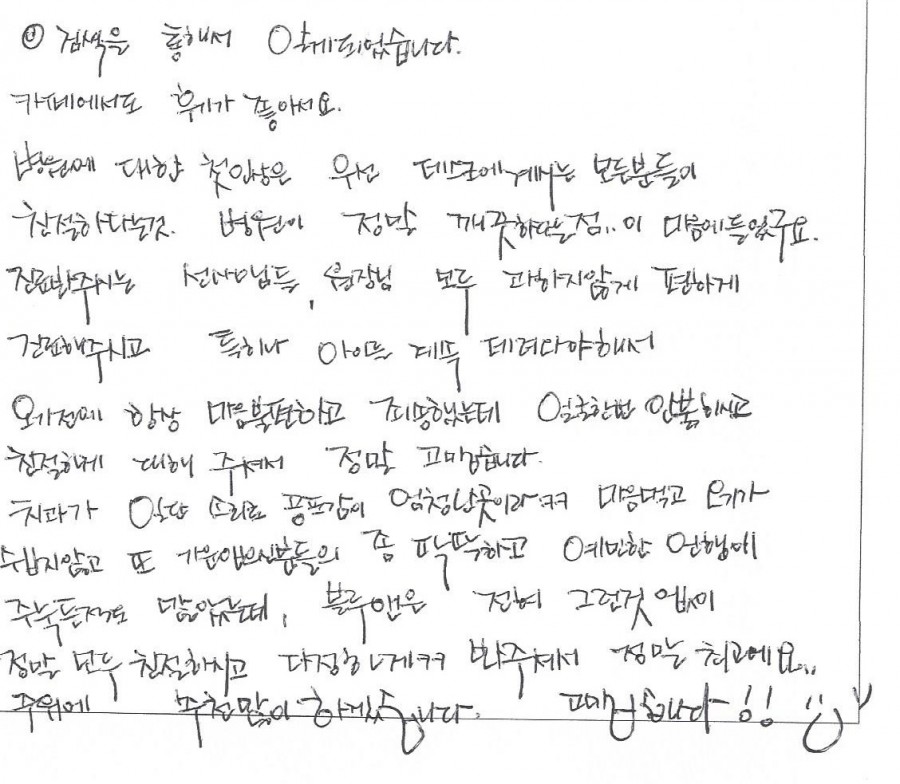 ① 검색을 통해서 알게되었습니다.
카페에서도 후기가 좋아서요.
병원에 대한 첫인상은 우선 데스크에계시는 모든분들이
친절하다는것. 병원이 정말 깨끗하다는점.. 이 마음에들었구요.
진료봐주시는 선생님들, 원장님 모두 과하지않게 편하게
진료해주시고 특히나 아이들 데려다야해서
오기전에 항상 마음불편하고 죄송했는데 얼굴한번 안붉히시고
친절하게 대해 주셔서 정말 고마웠습니다.
치과가 일단 소리로 공포감이 엄청난곳이라ㅋㅋ 마음먹고 오기가
쉽지않고 또 가운입으신분들의 좀 딱딱하고 예민한 언행에
주눅든적도 많았는데, 블루앤은 전혀 그런것 없이
정말 모두 친절하시고 다정하게ㅋㅋ 봐주셔서 정말 최고에요..
주위에 추천많이 하겠습니다. 고마워습니다!! :)